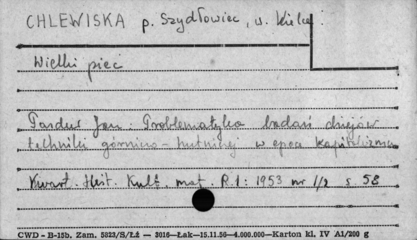 CHLEWISKA p. Szydłowiec, w. Kielce
Wielki piec
Pazdur Jan: Problematyka badań dziejów
techniki górniczo-hutniczej w epoce kapitalizmu
Kwart. Hist. Kult. mat. R.1: 1953 nr 1/2 s. 58
CWD - B-15b. Zam. 5823/S/Łź — 3016—Łak—15.11.56—4.000.000—Karton kl. IV A1/200 g